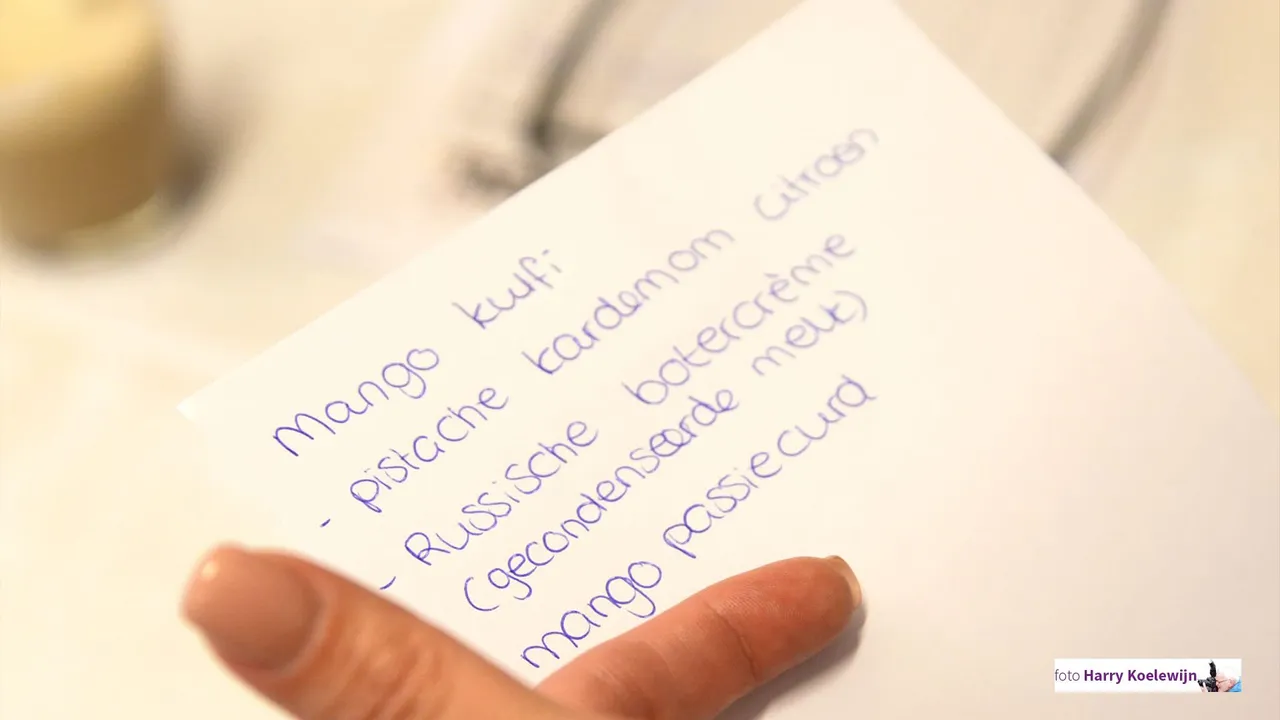 Mango kulfi
- pistache kardemom citroen
- Russische botercrème
(gecondenseerde melk)
mango passiecurd
foto Harry Koelewijn